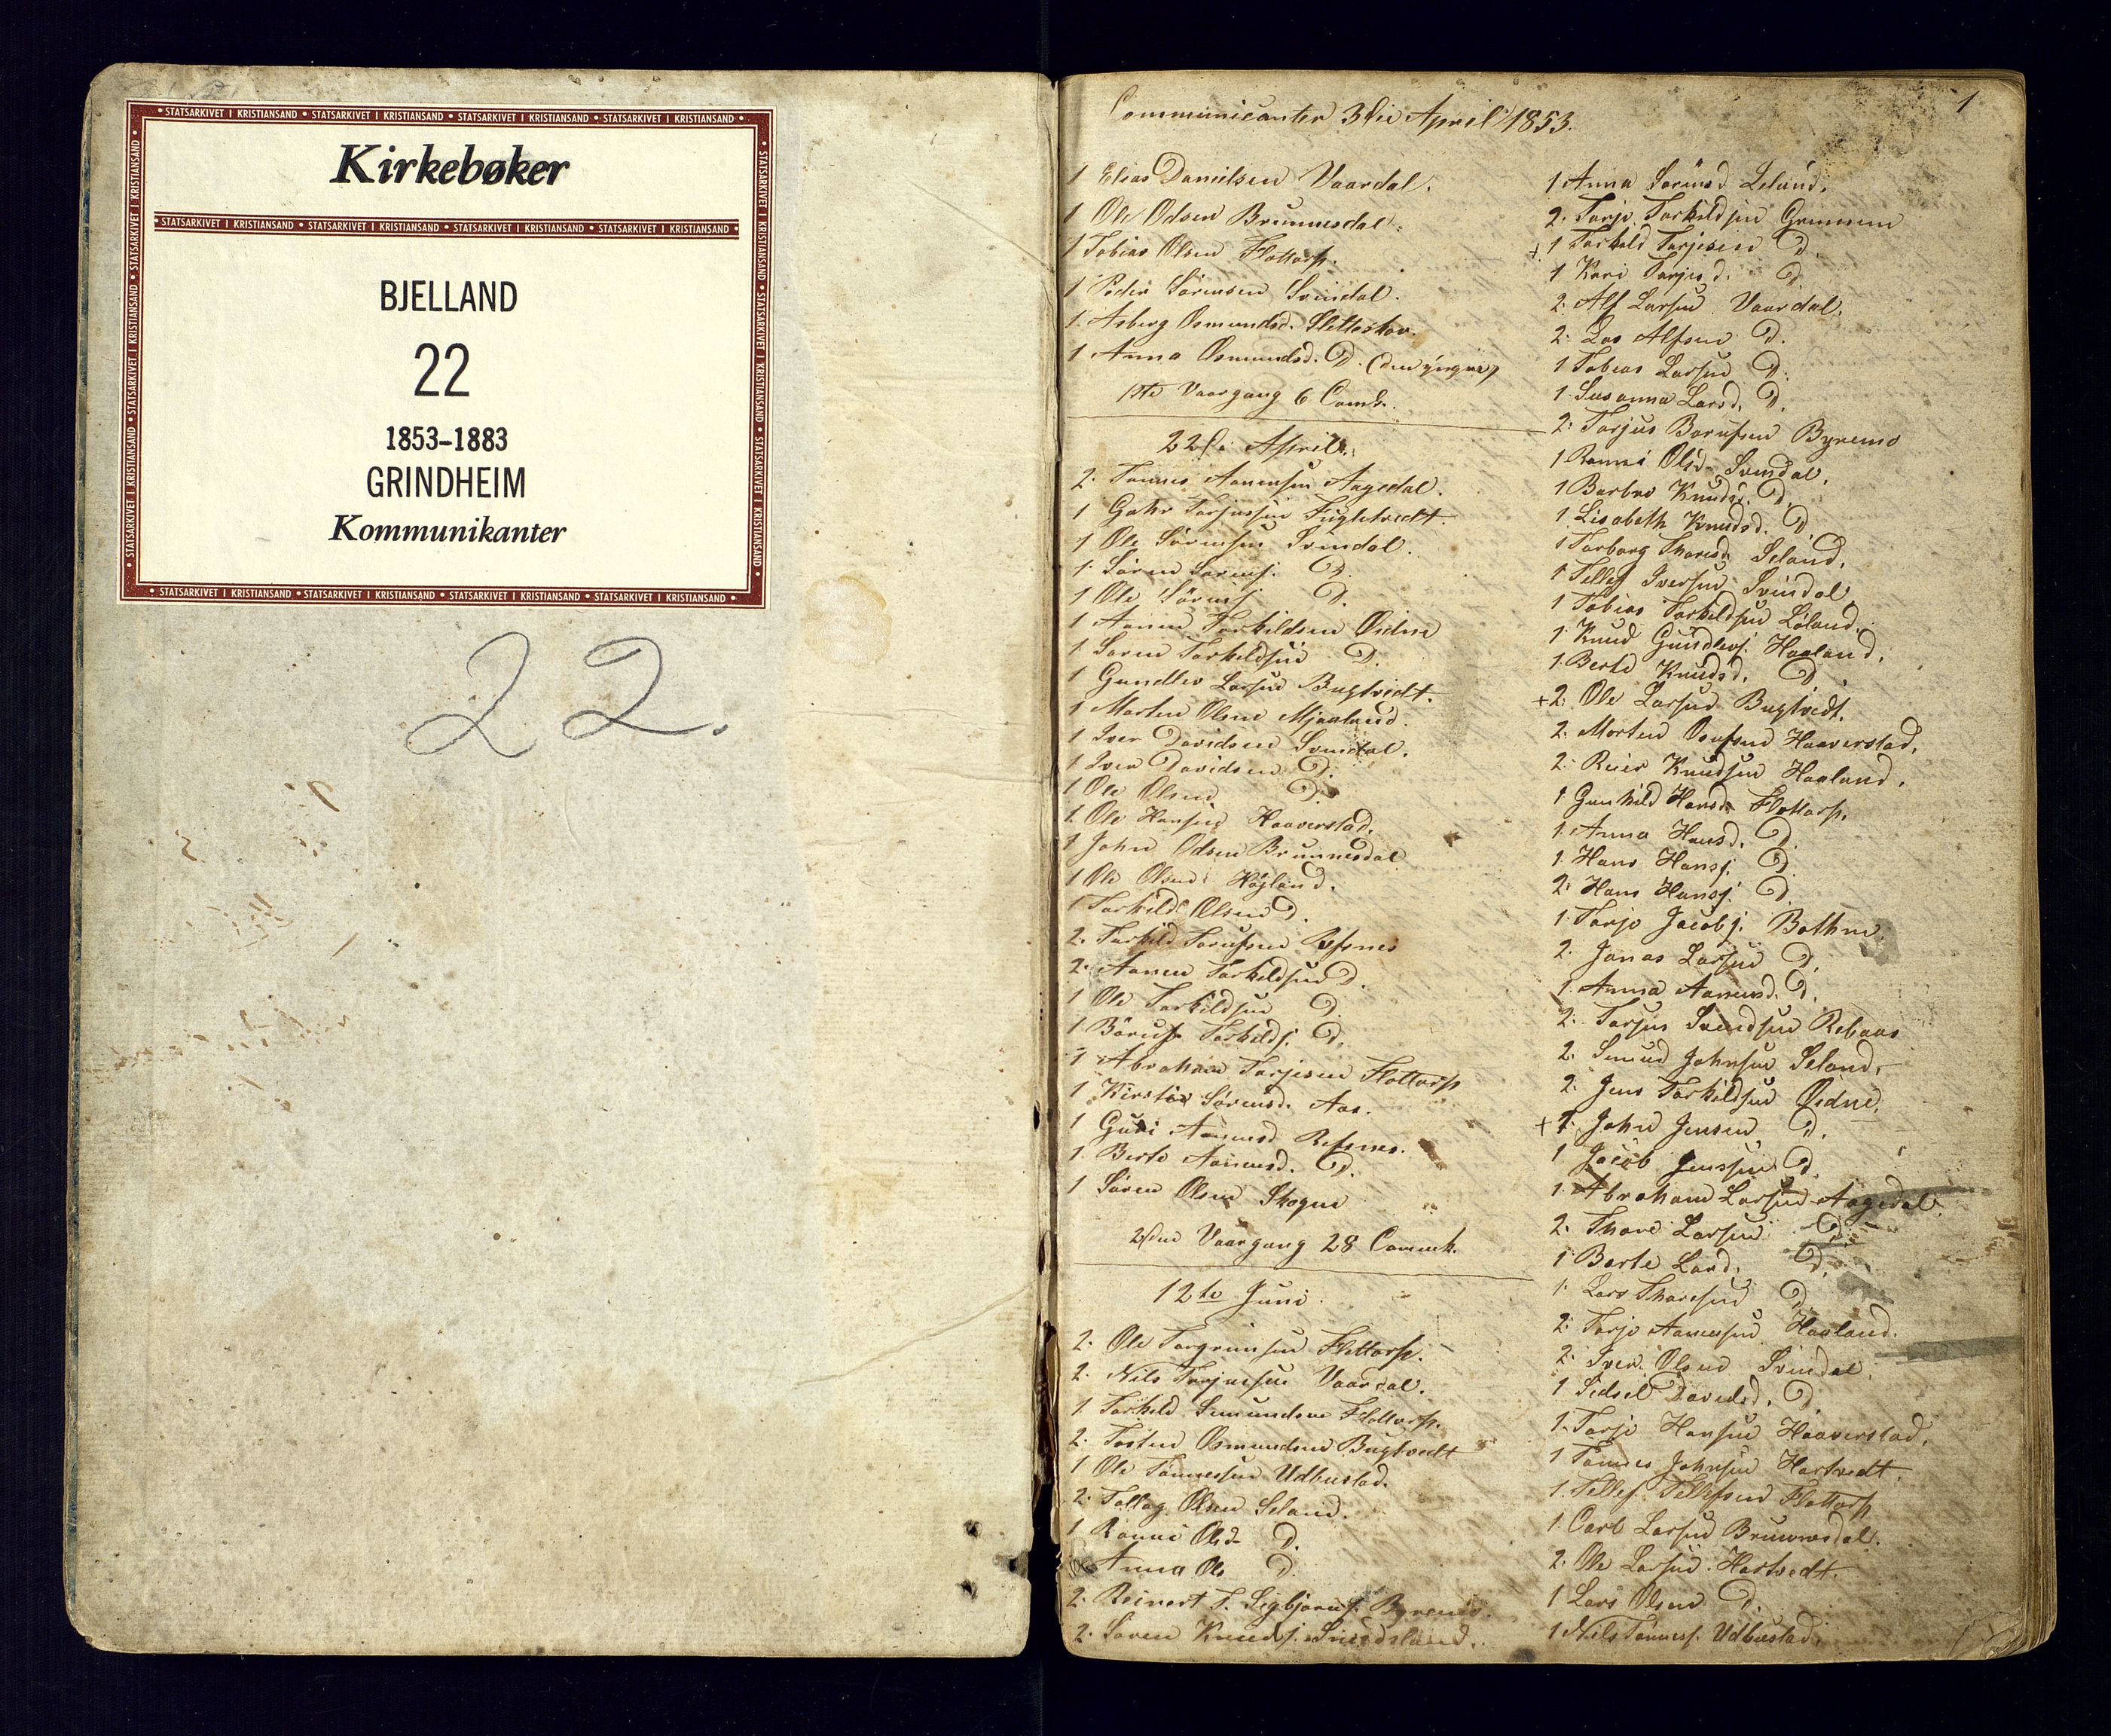 STATSARKIVET I KRISTIANSAND • STATSARKIVET I KRISTIANSAND • STATSARKIVET I KRISTIANSAND • STATSARKIVET I KRISTIANSAND
Kirkebøker
STATSARKIVET I KRISTIANSAND • STATSARKIVET I KRISTIANSAND • STATSARKIVET I KRISTIANSAND • STATSARKIVET I KRISTIANSAND
BJELLAND
22
1853-1883
GRINDHEIM
Kommunikanter
STATSARKIVET I KRISTIANSAND • STATSARKIVET I KRISTIANSAND • STATSARKIVET I KRISTIANSAND • STATSARKIVET I KRISTIANSAND
22.
1
Communicanter 3die April 1853.
1 Elias Danielsen Vaardal.
1 Ole Odsen Brunnesdal.
1 Tobias Olsen Flottorp.
1 Peder Sørensen Svindal.
1. Asberg Osmundsd. Sletteskov.
1 Anna Osmundsd. D. (den yngre)
1ste Vaargang 6 Comk.
22de April.
2. Tønnes Aanensen Aagedal.
1 Gahr Tarjussen Fugletvedt.
1 Ole Sørensen Svindal.
1. Søren Sørens. D.
1 Ole Sørens. D.
1 Aanen Torkildsen Øidne
1. Søren Torkildsen D.
1 Gundlev Larsen Bugtvedt.
1 Morten Olsen Mjaaland.
1 Iver Davidsen Svindal.
1 Iver Davidsen D.
1 Ole Olsen D.
1. Ole Hansen Haaverstad.
1 John Odsen Brunnesdal
1 Ole Olsen Høyland.
1 Torkild Olsen D.
2. Torkild Torufsen Refsnes
2. Aanen Torkildsen D.
1 Ole Torkildsen D.
1 Børuf Torkilds. D.
1 Abraham Tarjesen Flottorp
1 Kirstie Sørensd. Aas.
1 Guri Aanensd. Refsnes.
1. Berte Aanensd. D.
1 Søren Olsen Skogen
2den Vaargang 28 Comk.
12te Juni.
2. Ole Torgrimsen Flottorp.
2. Nils Tarjussen Vaardal.
1 Torkild Simundsen Flottorp.
2. Tosten Osmundsen Bugtvedt
1 Ole Tønnessen Udbustad.
2. Tollag Olsen Seland.
1 Rønnei Olsd. D.
Anna Ols D.
2. Reinert T. Sigbjørns. Byremo.
2. Søren Knuds. Sveindsland.
1 Anna Sørensd. Leland.
2. Tarje Torkildsen Grummen
+ 1 Torkild Tarjesen D.
1 Kari Tarjesd. D.
2. Alf Larsen Vaardal.
2. Lars Alfsen D.
1 Tobias Larsen D.
1 Susanna Larsd. D.
2. Tarjus Børufsen Byremo
1 Rønnei Olsd. Svindal.
1 Barbro Knudsd. D.
1 Lisabeth Knudsd. D.
1 Torborg Thoresd. Seland.
1 Tellef Iversen Svindal
1 Tobias Torkildsen Løland.
1 Knud Gundlevs. Haaland.
1. Berte Knudsd. D.
+ 2. Ole Larsen Bugtvedt.
2. Morten Osufsen Haaverstad.
2. Reier Knudsen Haaland.
1 Gunhild Hansd. Flottorp.
1. Anna Hansd. D.
1. Hans Hanss. D.
2. Hans Hanss. D.
1. Tarje Jacobs. Bothne.
2. Jonas Larsen D.
1. Anna Aanensd. D.
2. Tarjus Svendsen Rebaas
2. Simud Johnsen Seland.
2. Jens Torkildsen Øidne.
+ 1. John Jensen D.
1 Jacob Jenssen D.
1. Abraham Larsen Aagedal.
2. Thore Larsen D.
1 Berte Larsd. D.
1. Lars Thoresen D.
2. Tarje Aanensen Haaland.
2. Iver Olsen Svindal.
1 Sidsel Davidsd. D.
1. Tarje Hansen Haaverstad.
1 Tønnes Johnsen Hartvedt.
1. Tellef Tellefsen Flottorp
1. Carl Larsen Brunnesdal.
2. Ole Larsen Hartvedt.
1 Lars Olsen D.
1 Nils Tønness. Udbustad.